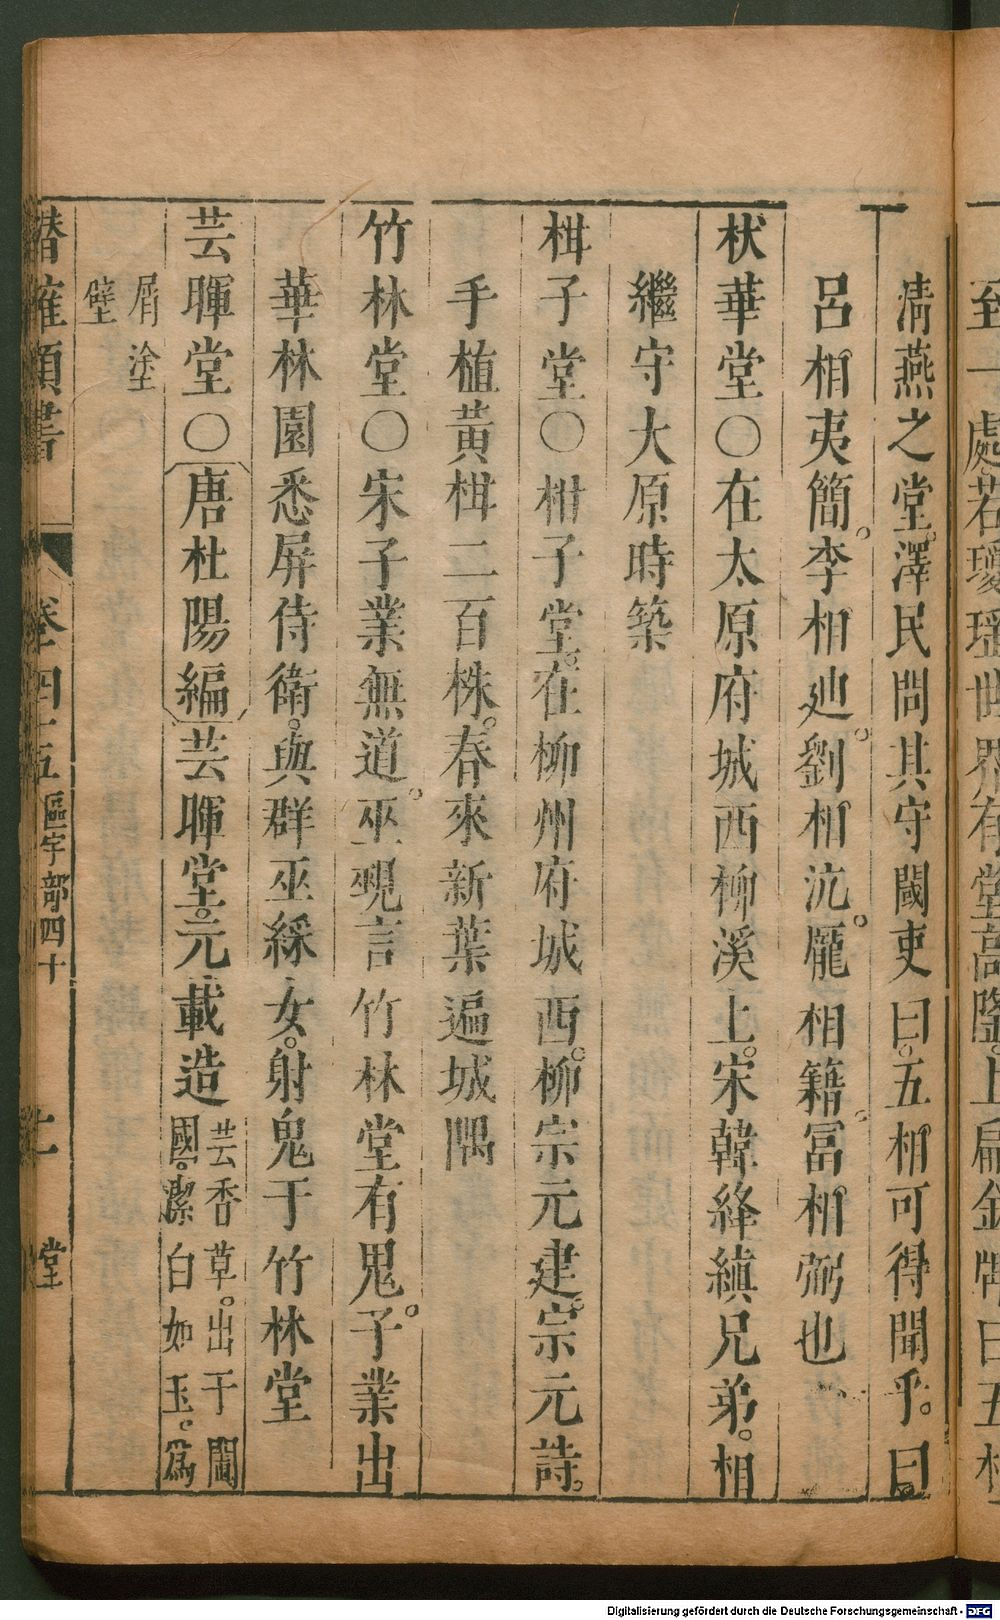 到一處若瓊瑤世界有堂高隥上扁金牌曰五相
清燕之堂。澤民問其守閽吏曰。五相可得聞乎。曰。
呂相夷簡。李相廸。劉相沆。龐相籍。冨相弼也
栿華堂○在太原府城西柳溪上。宋韓絳縝兄弟。相
繼守大原時築
柑子堂○柑子堂。在柳州府城西。柳宗元建。宗元詩。
手植黃柑二百株。春來新葉遍城隅
竹林堂○宋子業無道。巫覡言竹林堂有鬼。子業出
華林園悉屏侍衛。與群巫綵女。射鬼于竹林堂
芸暉堂○唐杜陽編芸暉堂。元載造芸香草。出于闐
國。潔白如玉。為
屑塗
壁
潛確類書 卷四十五 區宇部四十 堂
Digitalisierung gefördert durch die Deutsche Forschungsgemeinschaft - DFG